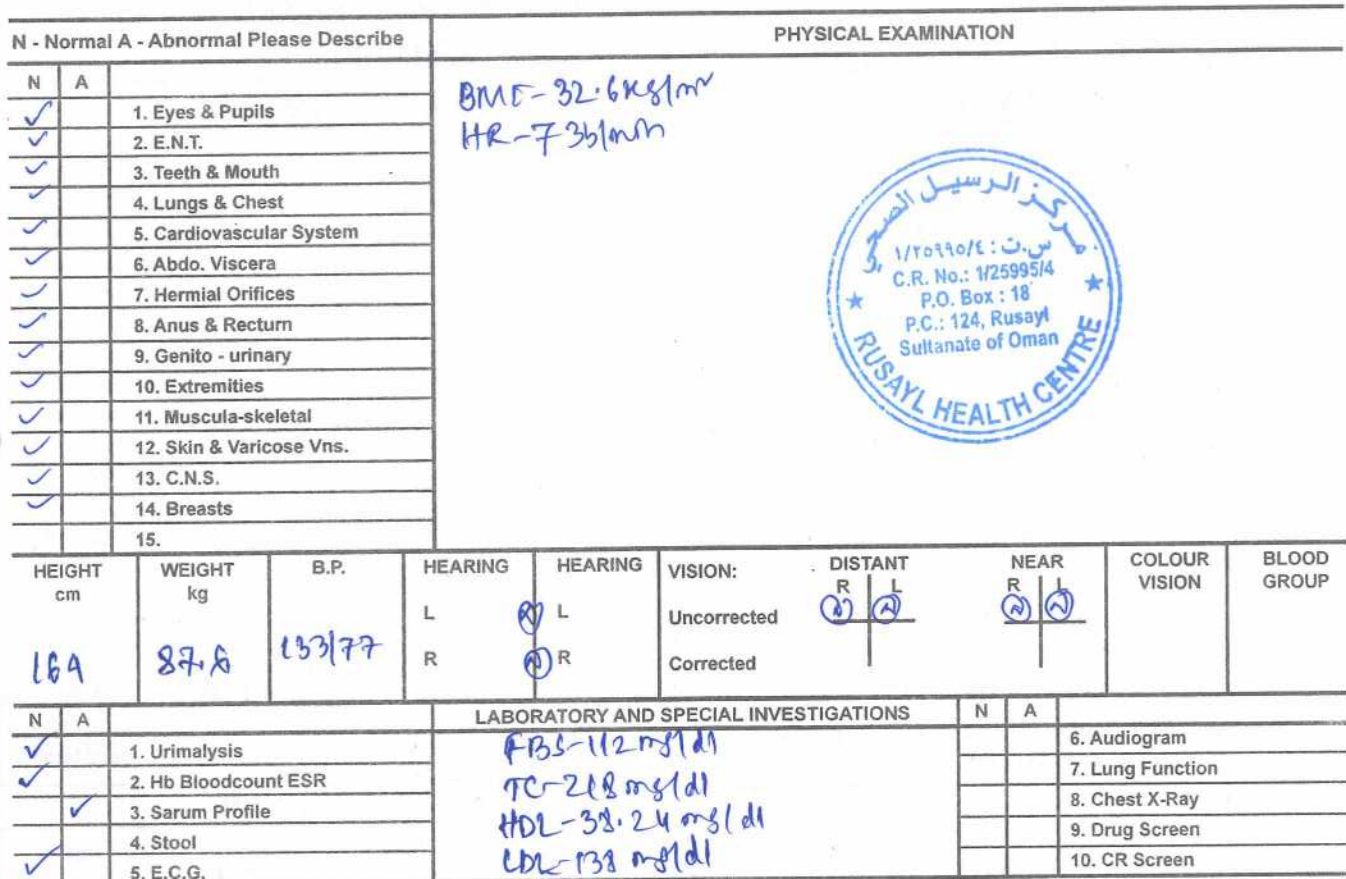 N - Normal A - Abnormal Please Describe
PHYSICAL EXAMINATION
N A
1. Eyes & Pupils
2. E.N.T.
3. Teeth & Mouth
4. Lungs & Chest
5. Cardiovascular System
6. Abdo. Viscera
7. Hermial Orifices
8. Anus & Recturn
9. Genito - urinary
10. Extremities
11. Muscula-skeletal
12. Skin & Varicose Vns.
13. C.N.S.
14. Breasts
15.
BMI - 32.6 Kg/m²
HR - 73b/min
مركز الرسيل الصحي
س.ت : ١/٢٥٩٩٥/٤
C.R. No.: 1/25995/4
P.O. Box : 18
P.C.: 124, Rusayl
Sultanate of Oman
RUSAYL HEALTH CENTRE
HEIGHT WEIGHT B.P. HEARING HEARING VISION: DISTANT NEAR COLOUR BLOOD
cm kg R L R L VISION GROUP
L N L Uncorrected N N N N
164 87.6 133/77 R N R Corrected
N A LABORATORY AND SPECIAL INVESTIGATIONS N A
1. Urimalysis
2. Hb Bloodcount ESR
3. Sarum Profile
4. Stool
5. E.C.G.
FBS - 112 mg/dl
TC - 218 mg/dl
HDL - 38.24 mg/dl
LDL - 138 mg/dl
6. Audiogram
7. Lung Function
8. Chest X-Ray
9. Drug Screen
10. CR Screen